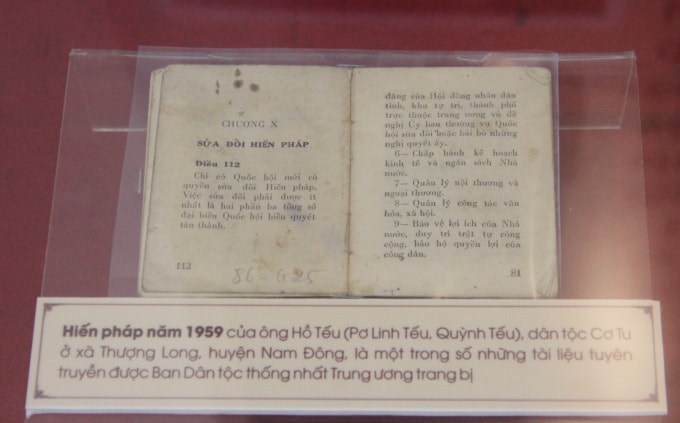 CHƯƠNG X
SỬA ĐỔI HIẾN PHÁP
Điều 112
Chỉ có Quốc hội mới có
quyền sửa đổi Hiến pháp.
Việc sửa đổi phải được ít
nhất là hai phần ba tổng số
đại biểu Quốc hội biểu quyết
tán thành.
112
86-G25
đáng của Hội đồng nhân dân
tỉnh, khu tự trị, thành phố
trực thuộc trung ương và đề
nghị Ủy ban thường vụ Quốc
hội sửa đổi hoặc bãi bỏ những
nghị quyết ấy.
6 — Chấp hành kế hoạch
kinh tế và ngân sách Nhà
nước.
7 — Quản lý nội thương và
ngoại thương.
8 — Quản lý công tác văn
hóa, xã hội.
9 — Bảo vệ lợi ích của Nhà
nước, duy trì trật tự công
cộng, bảo hộ quyền lợi của
công dân.
81
Hiến pháp năm 1959 của ông Hồ Tếu (Pơ Linh Tếu, Quỳnh Tếu), dân tộc Cơ Tu
ở xã Thượng Long, huyện Nam Đông, là một trong số những tài liệu tuyên
truyền được Ban Dân tộc thống nhất Trung ương trang bị